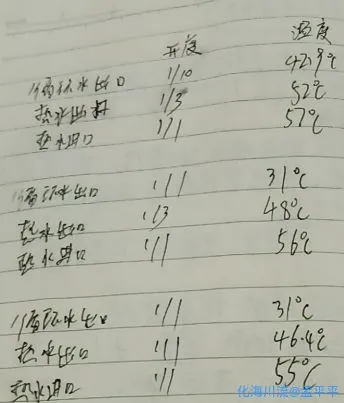 开度 温度
循环水出口 1/10 42.9℃
热水出口 1/3 52℃
热水进口 1/1 57℃
循环水出口 1/1 31℃
热水出口 1/3 48℃
热水进口 1/1 56℃
循环水出口 1/1 31℃
热水出口 1/1 46.4℃
热水进口 1/1 55℃
化海川流@孟平平